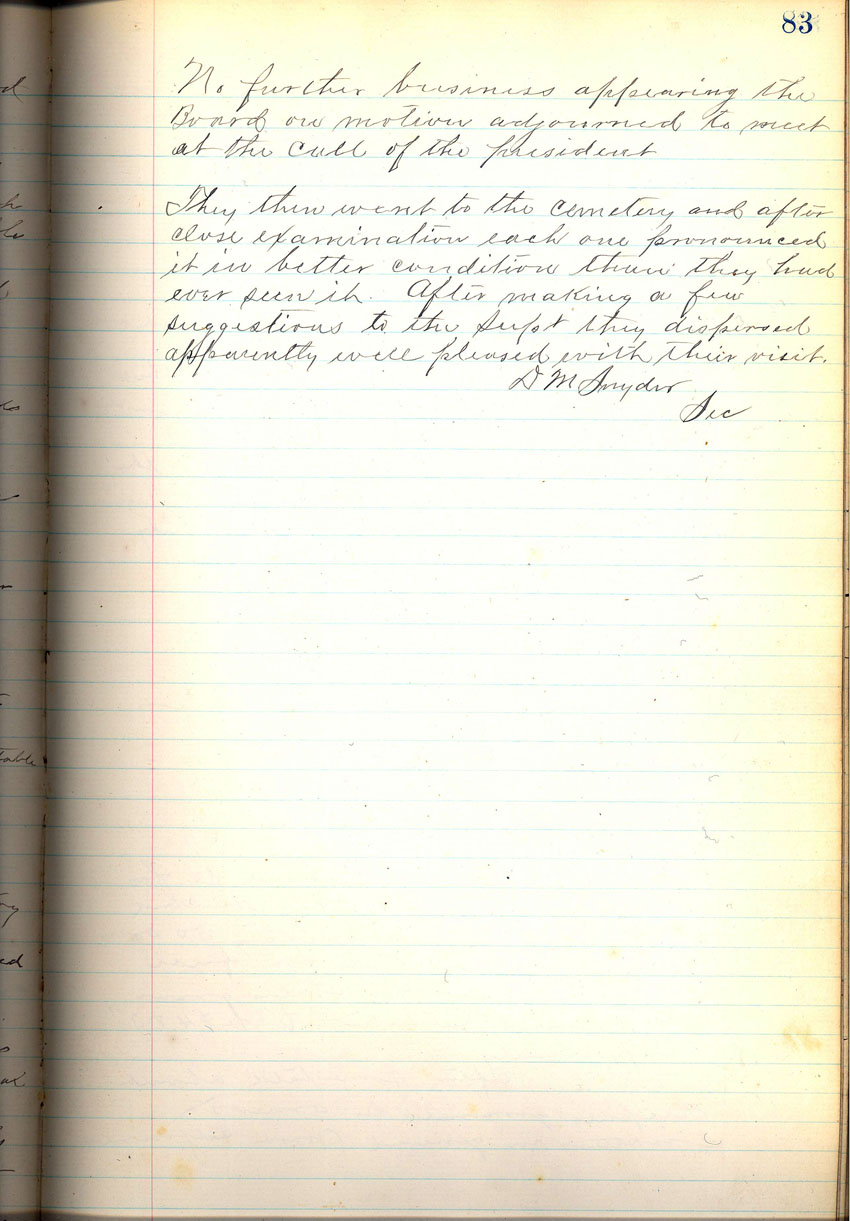 83
No further business appearing the
Board on motion adjourned to meet
at the call of the president
They then went to the cemetery and after
close examination each one pronounced
it in better condition than they had
ever seen it. After making a few
suggestions to the Supt they dispersed
apparently well pleased with their visit.
D M Snyder
Sec